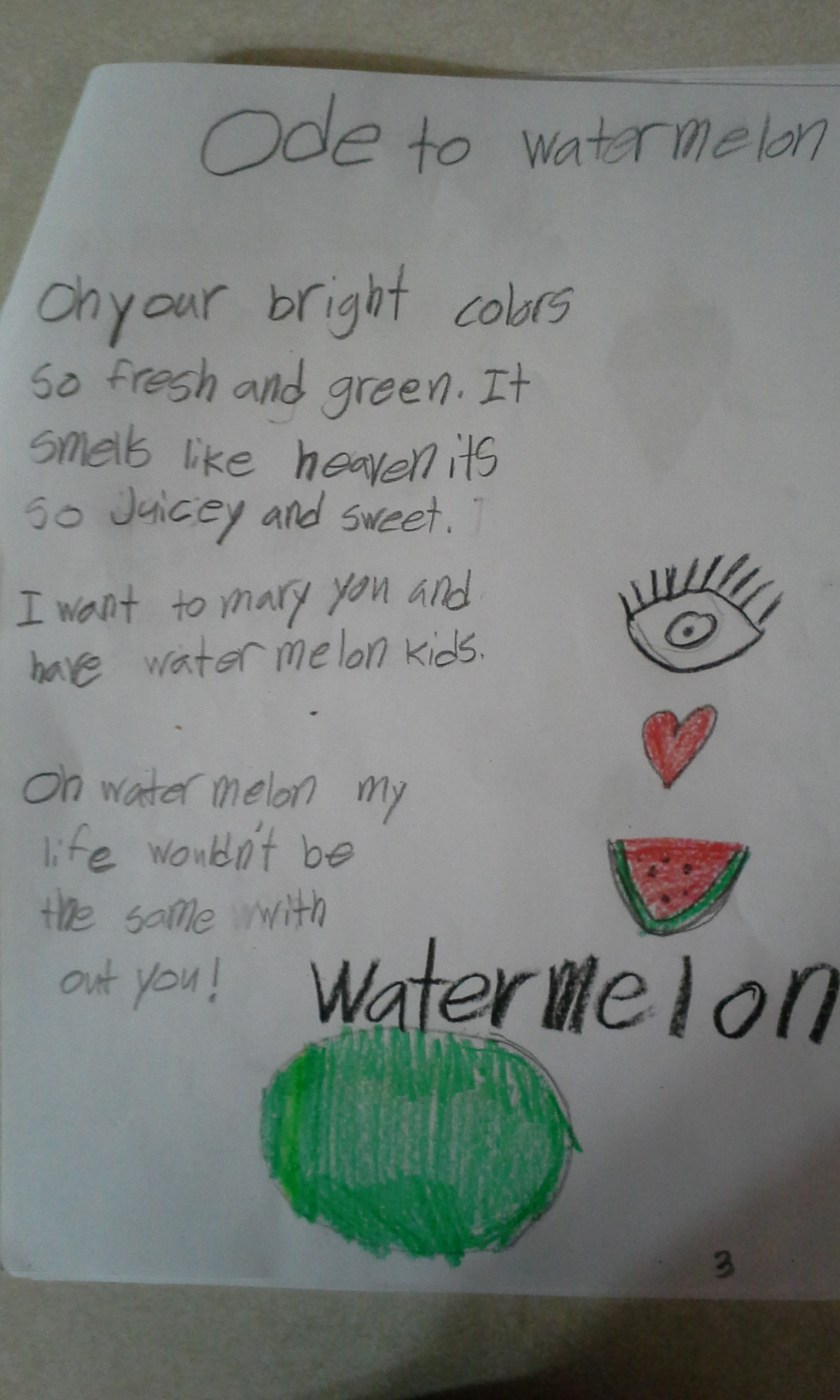 Ode to watermelon
Oh your bright colors
so fresh and green. It
smells like heaven its
so Juicey and sweet.
I want to mary you and
have water melon kids.
Oh water melon my
life wouldn't be
the same with
out you!
Watermelon
3